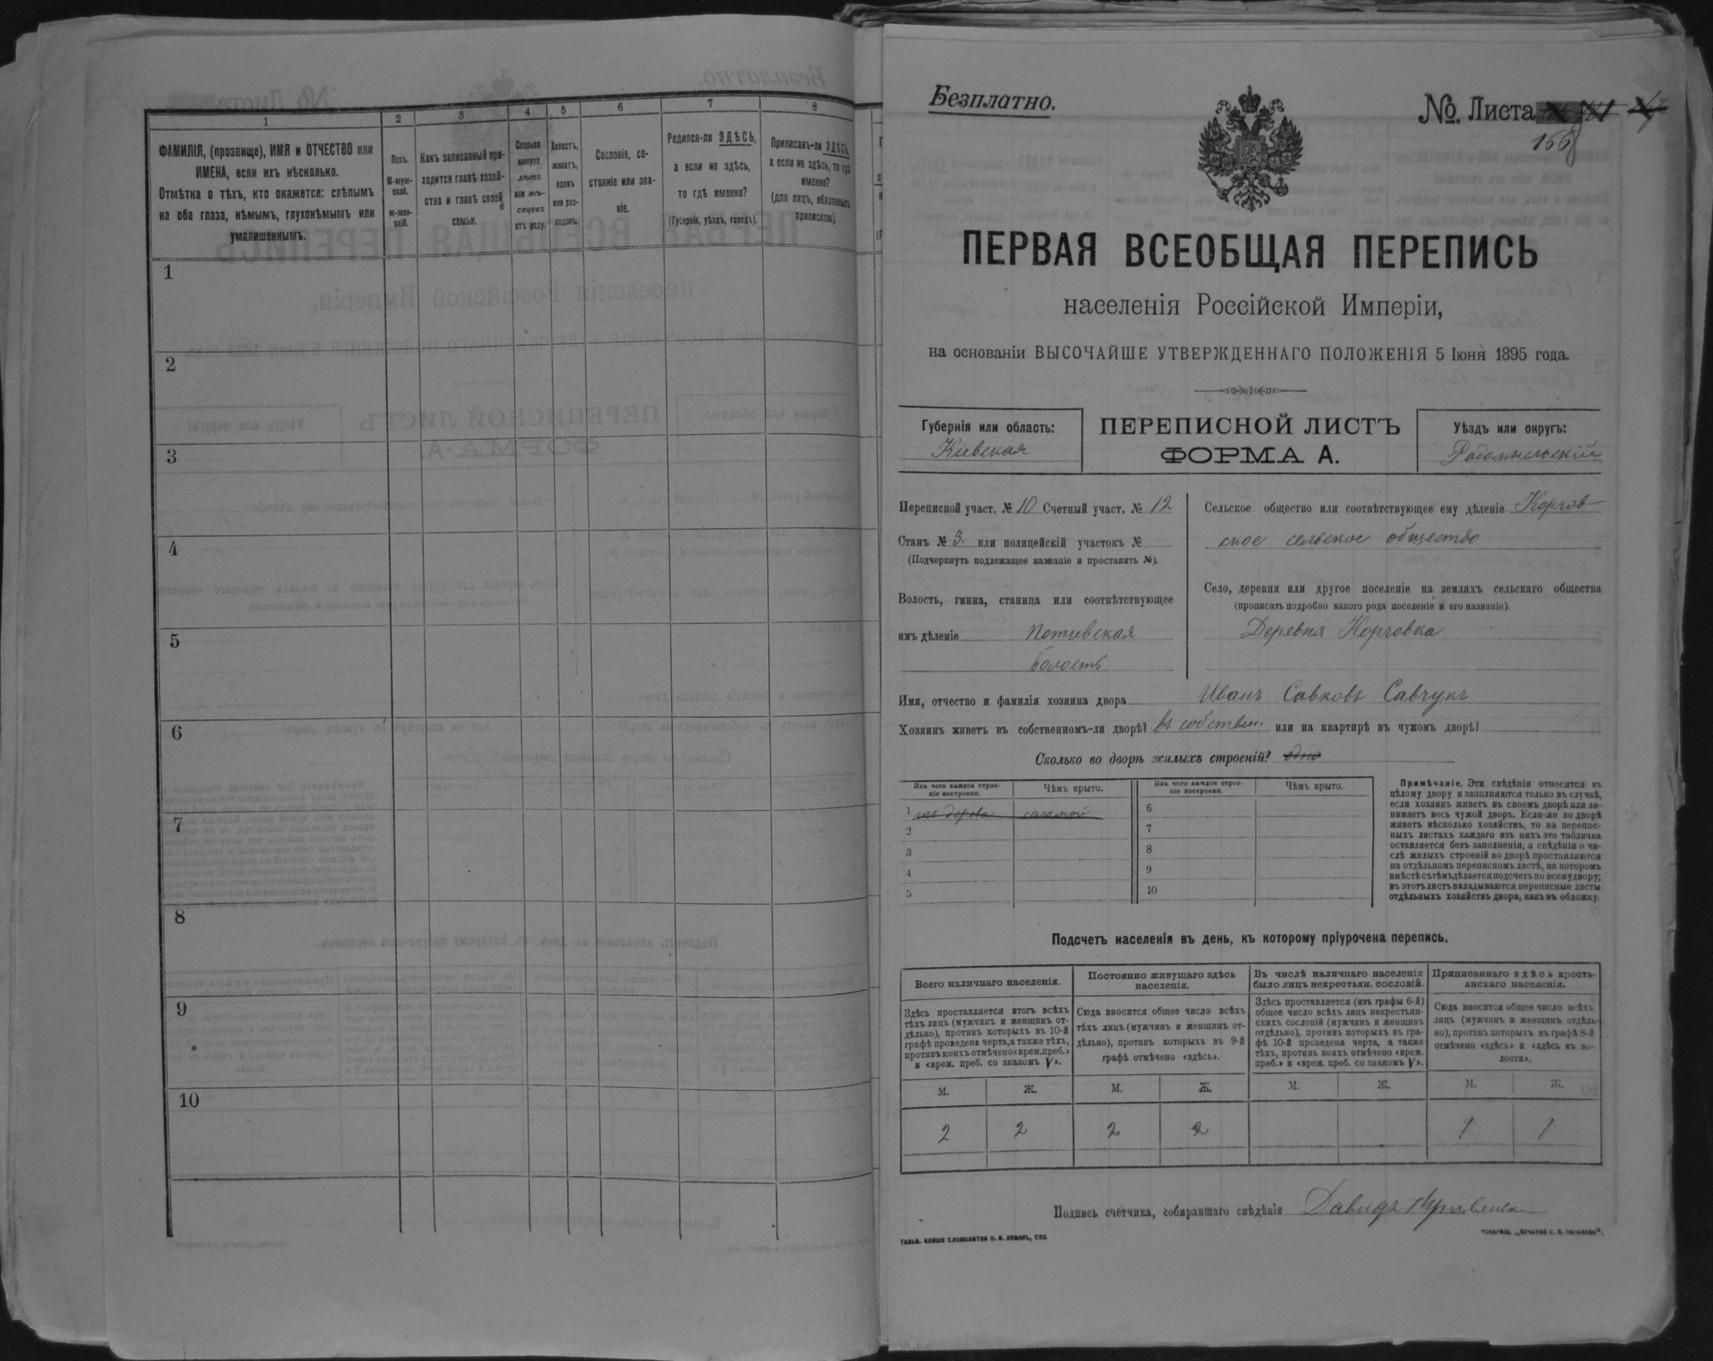 1
2
3
4
5
6
7
8
ФАМИЛІЯ, (прозвище), ИМЯ и ОТЧЕСТВО или
ИМЕНА, если ихъ нѣсколько.
Отмѣтка о тѣхъ, кто окажется: слѣпымъ
на оба глаза, нѣмымъ, глухонѣмымъ или
умалишеннымъ.
Полъ.
М-муж-
ской.
Ж-жен-
скій.
Какъ записанный при-
ходится главѣ хозяй-
ства и главѣ своей
семьи.
Сколько
минуло
лѣтъ
или мѣ-
сяцевъ
отъ роду.
Холостъ,
женатъ,
вдовъ
или раз-
веденъ.
Сословіе, со-
стояніе или зва-
ніе.
Родился-ли ЗДѢСЬ,
а если не здѣсь,
то гдѣ именно?
(Губернія, уѣздъ, городъ).
Приписанъ-ли ЗДѢСЬ,
а если не здѣсь, то гдѣ
именно?
(для лицъ, обязанныхъ
припиской).
1
2
3
4
5
6
7
8
9
10
Безплатно.
№ Листа
166
ПЕРВАЯ ВСЕОБЩАЯ ПЕРЕПИСЬ
населенія Россійской Имперіи,
на основаніи ВЫСОЧАЙШЕ УТВЕРЖДЕННАГО ПОЛОЖЕНІЯ 5 Іюня 1895 года.
Губернія или область:
Кіевская
ПЕРЕПИСНОЙ ЛИСТЪ
ФОРМА А.
Уѣздъ или округъ:
Радомысльскій
Переписной участ. № 10 Счетный участ. № 12
Станъ № 3 или полицейскій участокъ №
(Подчеркнуть подлежащее названіе и проставить №).
Волость, гмина, станица или соотвѣтствующее
имъ дѣленіе Потіевская
волость
Сельское общество или соотвѣтствующее ему дѣленіе Корчов-
ское сельское общество
Село, деревня или другое поселеніе на земляхъ сельскаго общества
(прописать подробно какого рода поселеніе и его названіе).
Деревня Корчовка
Имя, отчество и фамилія хозяина двора Иванъ Савковъ Савчукъ
Хозяинъ живетъ въ собственномъ-ли дворѣ? въ собствен. или на квартирѣ въ чужомъ дворѣ?
Сколько во дворѣ жилыхъ строеній? одно
Изъ чего каждое строе-
ніе построено.
Чѣмъ крыто.
Изъ чего каждое строе-
ніе построено.
Чѣмъ крыто.
1 изъ дерева соломой
2
3
4
5
6
7
8
9
10
Примѣчаніе. Эти свѣдѣнія относятся къ
цѣлому двору и заполняются только въ случаѣ,
если хозяинъ живетъ въ своемъ дворѣ или за-
нимаетъ весь чужой дворъ. Если-же во дворѣ
живетъ нѣсколько хозяйствъ, то на перепис-
ныхъ листахъ каждаго изъ нихъ эта табличка
оставляется безъ заполненія, а свѣдѣнія о чи-
слѣ жилыхъ строеній во дворѣ проставляются
на отдѣльномъ переписномъ листѣ, на которомъ
вмѣстѣ съ тѣмъ дѣлается подсчетъ по всему двору;
въ этотъ листъ вкладываются переписные листы
отдѣльныхъ хозяйствъ двора, какъ въ обложку.
Подсчетъ населенія въ день, къ которому пріурочена перепись.
Всего наличнаго населенія.
Здѣсь проставляется итогъ всѣхъ
тѣхъ лицъ (мужчинъ и женщинъ от-
дѣльно), противъ которыхъ въ 10-й
графѣ проведена черта, а также тѣхъ,
противъ коихъ отмѣчено «врем. преб.»
и «врем. преб. со знакомъ V».
Постоянно живущаго здѣсь
населенія.
Сюда вносится общее число всѣхъ
тѣхъ лицъ (мужчинъ и женщинъ от-
дѣльно), противъ которыхъ въ 9-й
графѣ отмѣчено «здѣсь».
Въ числѣ наличнаго населенія
было лицъ некрестьян. сословій.
Здѣсь проставляется (изъ графы 6-й)
общее число всѣхъ лицъ некрестьян-
скихъ сословій (мужчинъ и женщинъ
отдѣльно), противъ которыхъ въ гра-
фѣ 10-й проведена черта, а также
тѣхъ, противъ коихъ отмѣчено «врем.
преб.» и «врем. преб. со знакомъ V».
Приписаннаго здѣсь кресть-
янскаго населенія.
Сюда вносится общее число всѣхъ
лицъ (мужчинъ и женщинъ отдѣль-
но), противъ которыхъ въ графѣ 8-й
отмѣчено «здѣсь» и «здѣсь въ во-
лости».
М. Ж. М. Ж. М. Ж. М. Ж.
2 2 2 2 1 1
Подпись счетчика, собиравшаго свѣдѣнія Давидъ